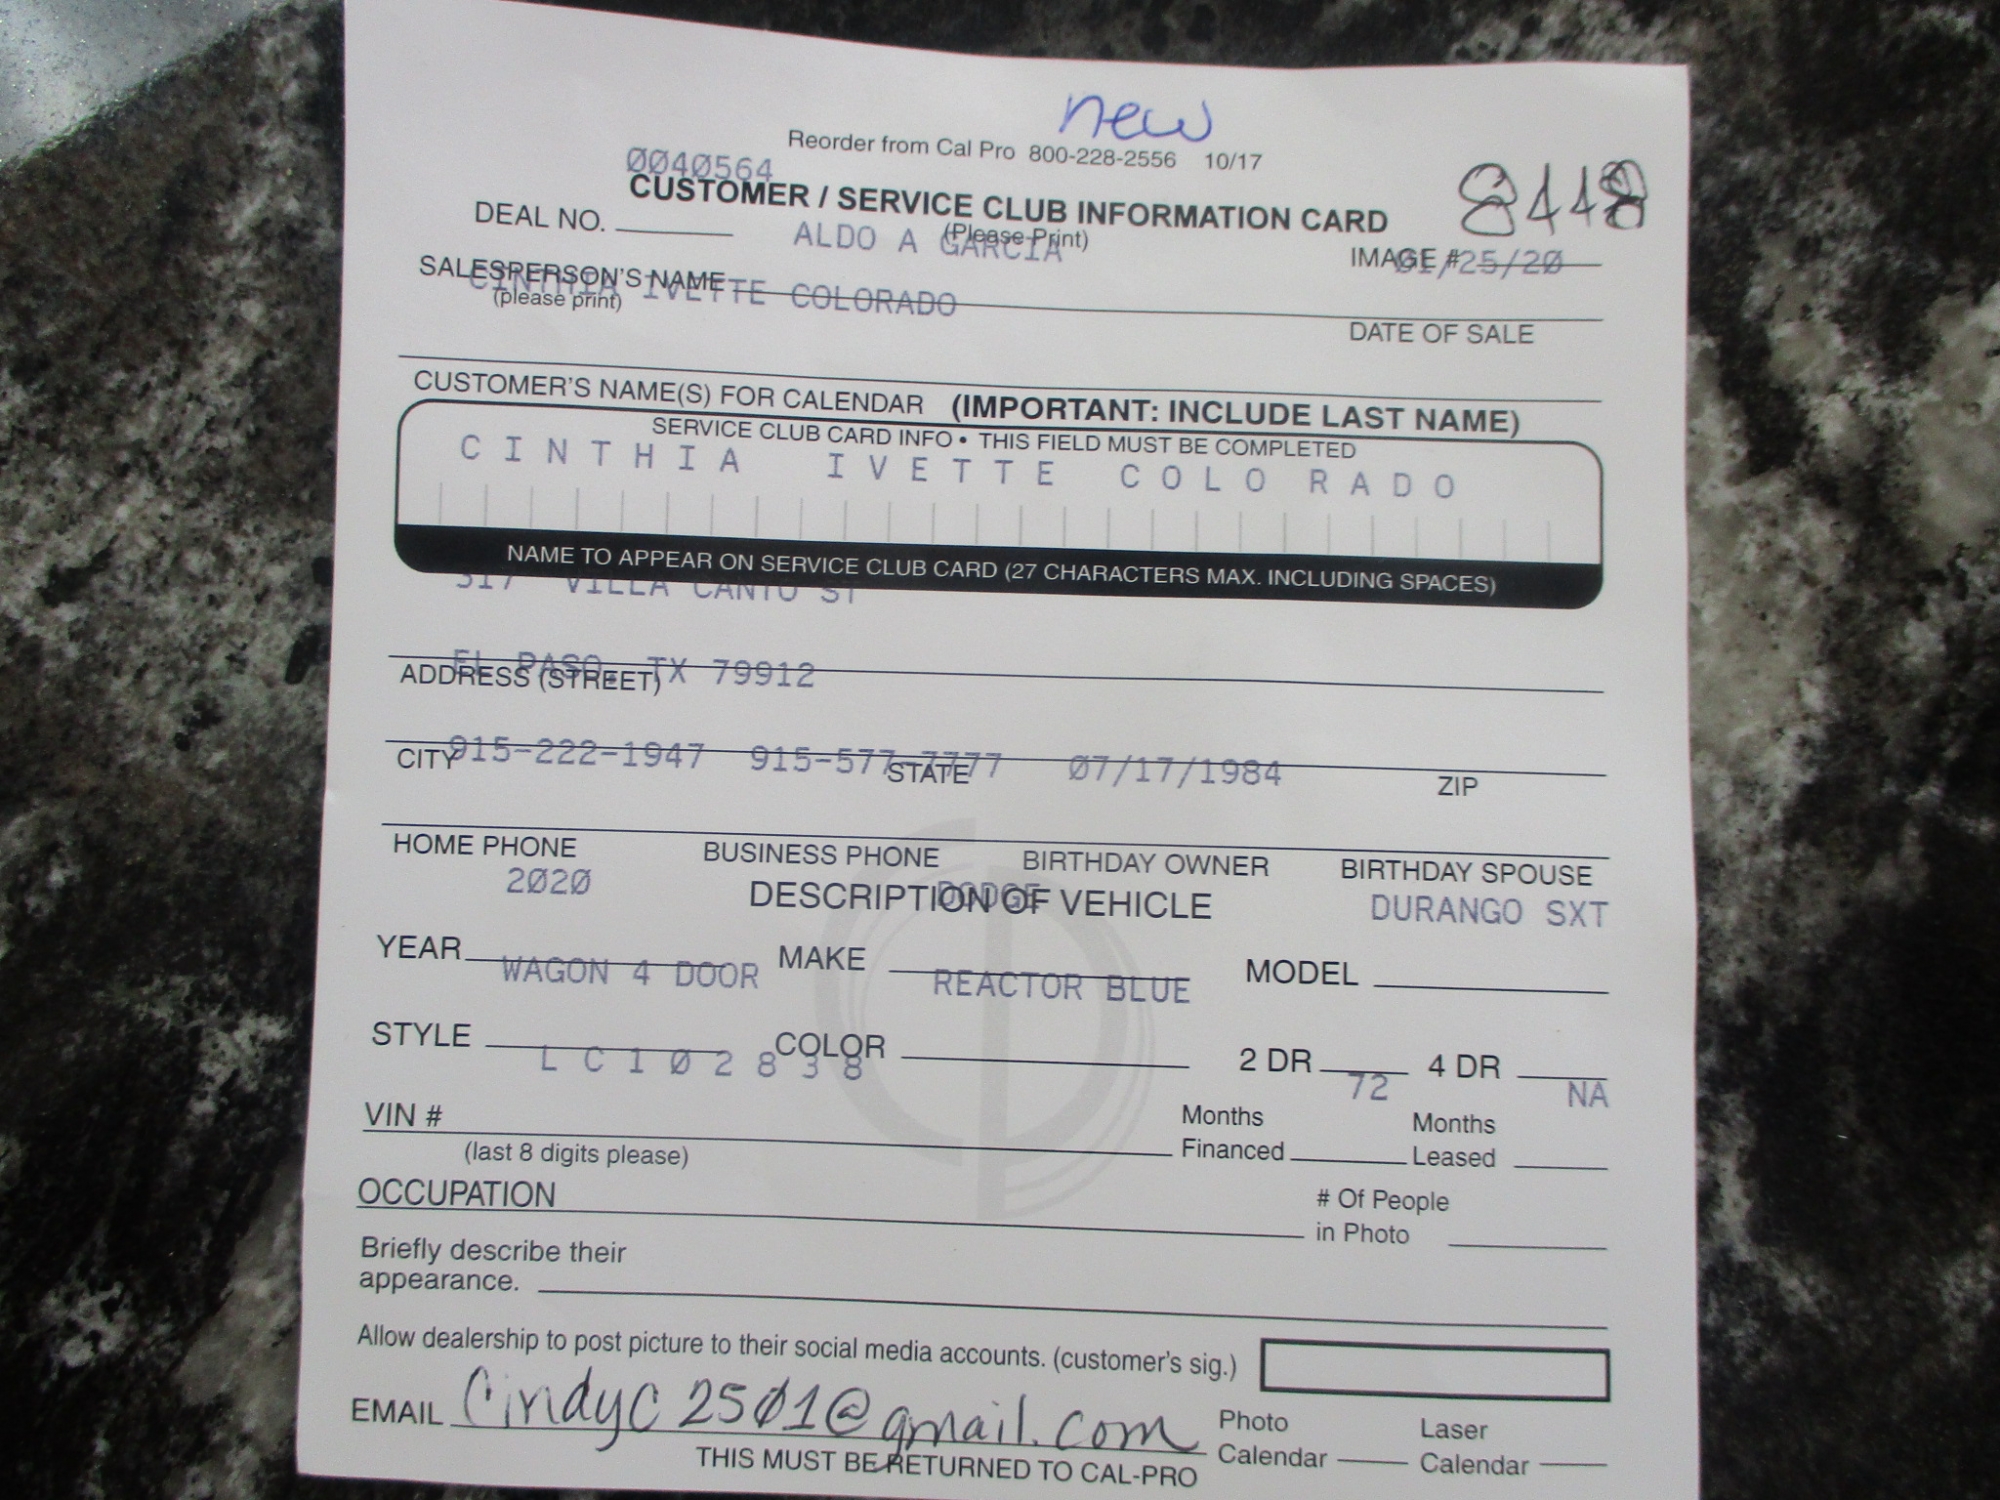 new
Reorder from Cal Pro 800-228-2556 10/17
0040564
8448
CUSTOMER / SERVICE CLUB INFORMATION CARD
(Please Print)
DEAL NO.
ALDO A GARCIA
IMAGE # 01/25/20
SALESPERSON'S NAME
(please print)
CINTHIA IVETTE COLORADO
DATE OF SALE
CUSTOMER'S NAME(S) FOR CALENDAR (IMPORTANT: INCLUDE LAST NAME)
SERVICE CLUB CARD INFO • THIS FIELD MUST BE COMPLETED
CINTHIA IVETTE COLORADO
NAME TO APPEAR ON SERVICE CLUB CARD (27 CHARACTERS MAX. INCLUDING SPACES)
517 VILLA CANTO ST
EL PASO, TX 79912
ADDRESS (STREET)
915-222-1947 915-577-7777 07/17/1984
CITY STATE ZIP
HOME PHONE BUSINESS PHONE BIRTHDAY OWNER BIRTHDAY SPOUSE
2020 DODGE DURANGO SXT
DESCRIPTION OF VEHICLE
YEAR MAKE MODEL
WAGON 4 DOOR REACTOR BLUE
STYLE COLOR 2 DR 4 DR
LC102838 72 NA
VIN # Months Financed Months Leased
(last 8 digits please)
OCCUPATION # Of People in Photo
Briefly describe their
appearance.
Allow dealership to post picture to their social media accounts. (customer's sig.)
EMAIL Cindyc2501@gmail.com Photo Calendar Laser Calendar
THIS MUST BE RETURNED TO CAL-PRO